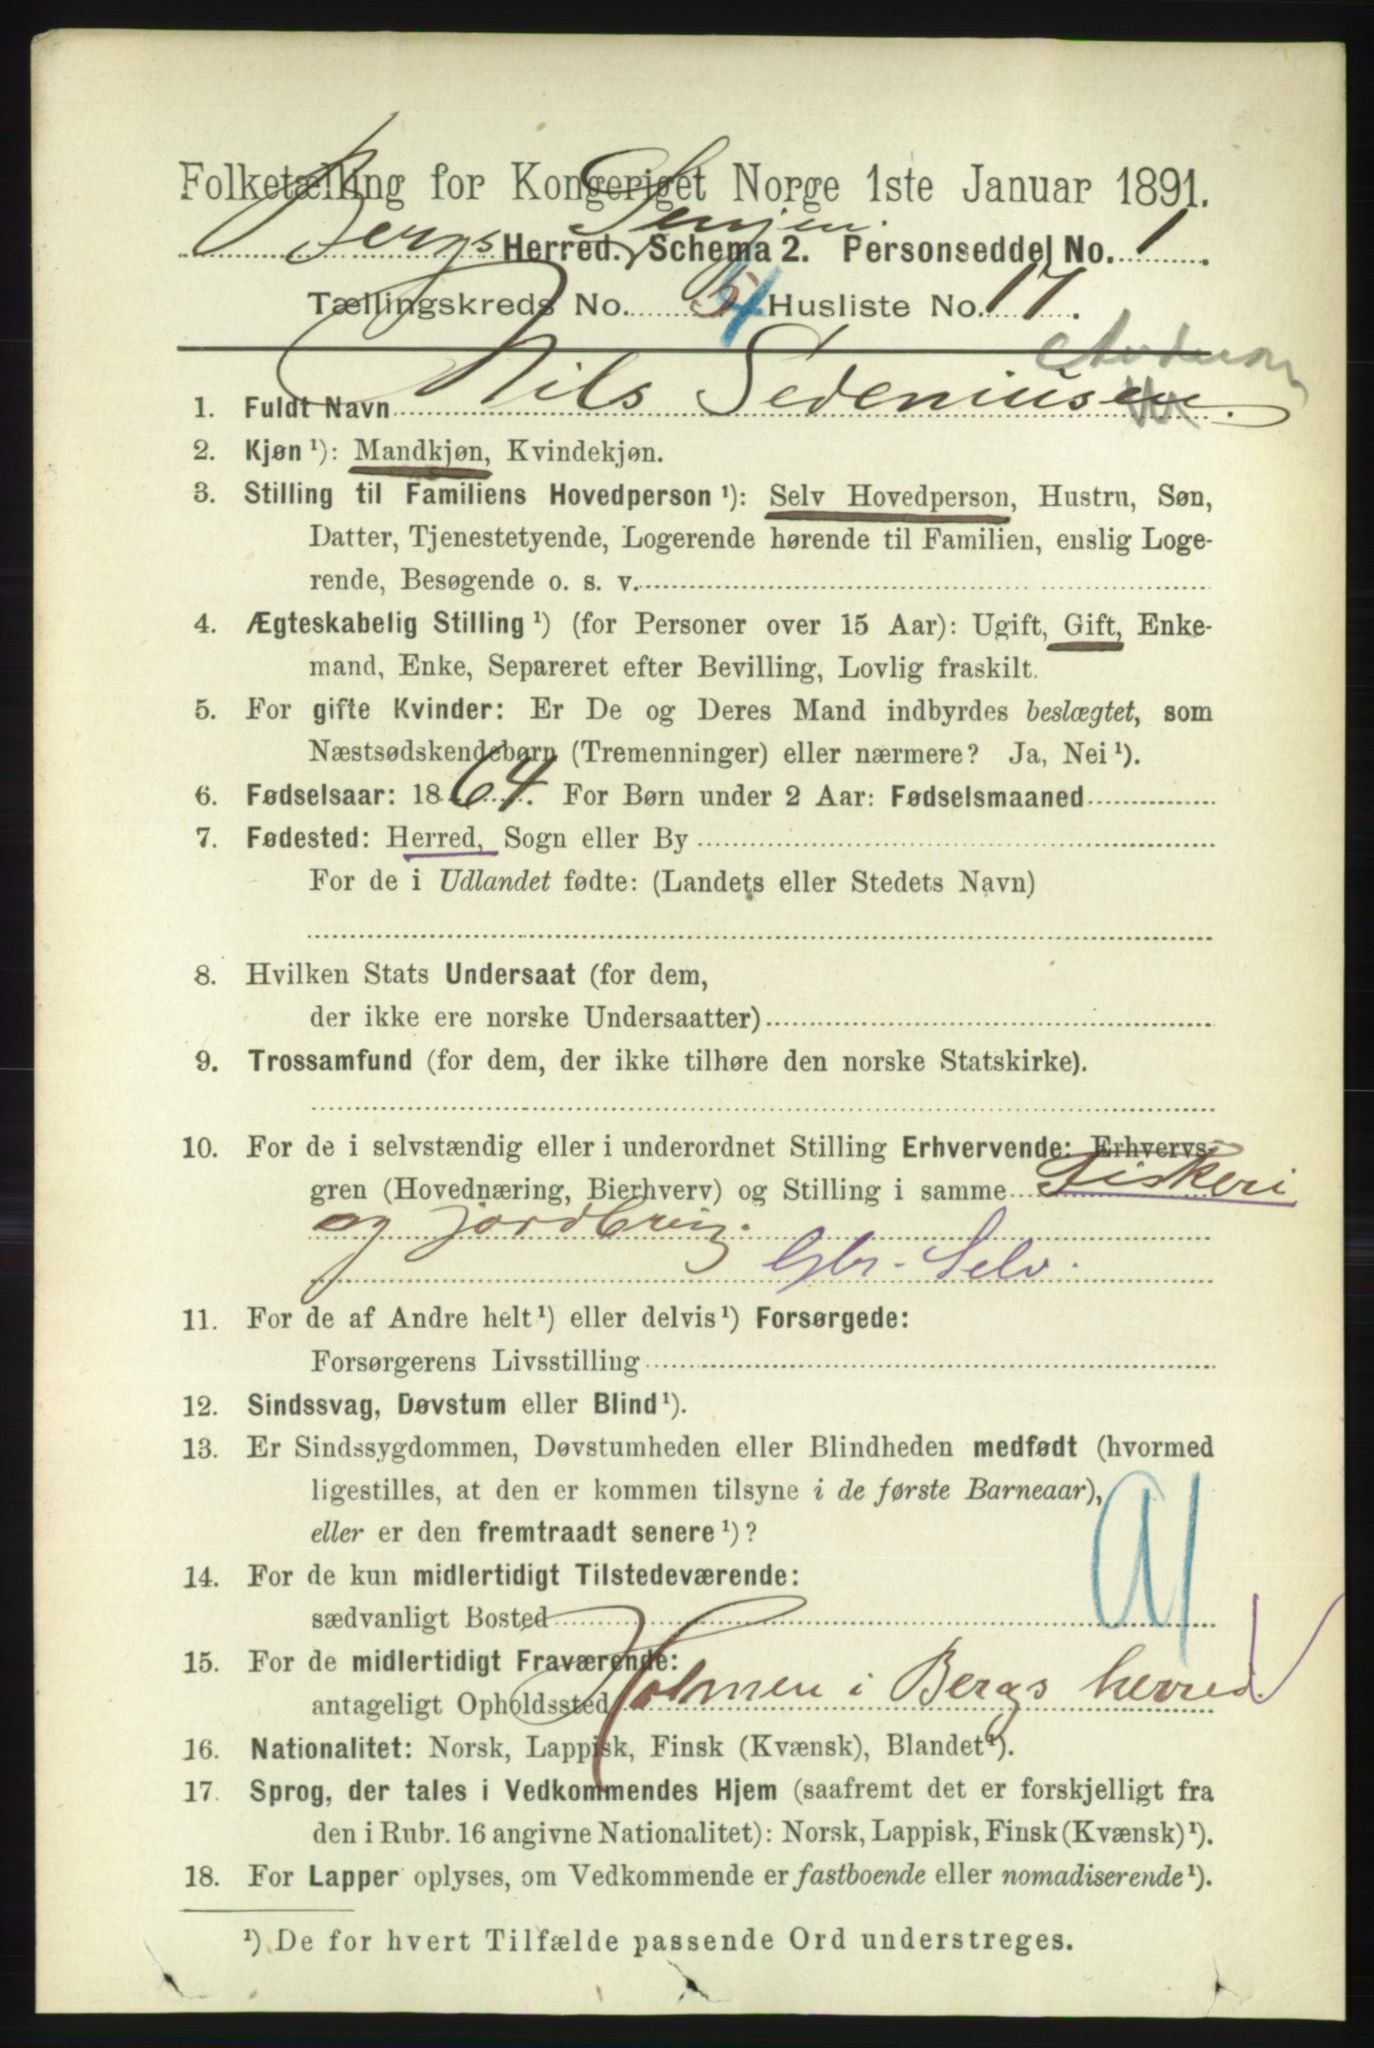 Folketælling for Kongeriget Norge 1ste Januar 1891.
Bergs Senjen.
Herred. Schema 2. Personseddel No. 1.
Tællingskreds No. 4 Husliste No. 17.
1. Fuldt Navn Nils Sedeniusen.
2. Kjøn ¹): Mandkjøn, Kvindekjøn.
3. Stilling til Familiens Hovedperson ¹): Selv Hovedperson, Hustru, Søn,
Datter, Tjenestetyende, Logerende hørende til Familien, enslig Loge-
rende, Besøgende o. s. v.
4. Ægteskabelig Stilling ¹) (for Personer over 15 Aar): Ugift, Gift, Enke-
mand, Enke, Separeret efter Bevilling, Lovlig fraskilt.
5. For gifte Kvinder: Er De og Deres Mand indbyrdes beslægtet, som
Næstsødskendebørn (Tremenninger) eller nærmere? Ja, Nei ¹).
6. Fødselsaar: 1864. For Børn under 2 Aar: Fødselsmaaned
7. Fødested: Herred, Sogn eller By
For de i Udlandet fødte: (Landets eller Stedets Navn)
8. Hvilken Stats Undersaat (for dem,
der ikke ere norske Undersaatter)
9. Trossamfund (for dem, der ikke tilhøre den norske Statskirke).
10. For de i selvstændig eller i underordnet Stilling Erhvervende: Erhvervs-
gren (Hovednæring, Bierhverv) og Stilling i samme Fiskeri
og jordbrug.
Gbr. Selv.
11. For de af Andre helt ¹) eller delvis ¹) Forsørgede:
Forsørgerens Livsstilling
12. Sindssvag, Døvstum eller Blind ¹).
13. Er Sindssygdommen, Døvstumheden eller Blindheden medfødt (hvormed
ligestilles, at den er kommen tilsyne i de første Barneaar),
eller er den fremtraadt senere ¹)?
14. For de kun midlertidigt Tilstedeværende:
sædvanligt Bosted
15. For de midlertidigt Fraværende:
antageligt Opholdssted Holmen i Bergs herred.
16. Nationalitet: Norsk, Lappisk, Finsk (Kvænsk), Blandet ¹).
17. Sprog, der tales i Vedkommendes Hjem (saafremt det er forskjelligt fra
den i Rubr. 16 angivne Nationalitet): Norsk, Lappisk, Finsk (Kvænsk) ¹).
18. For Lapper oplyses, om Vedkommende er fastboende eller nomadiserende ¹).
¹) De for hvert Tilfælde passende Ord understreges.